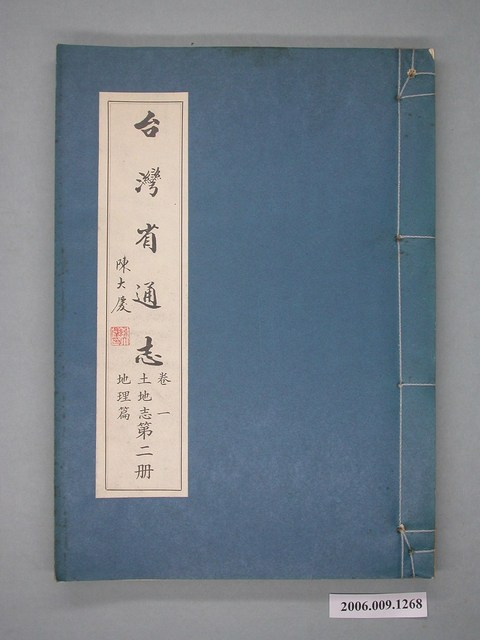 台灣省通志
陳大慶
卷一
土地志
地理篇
第二册
2006.009.1268